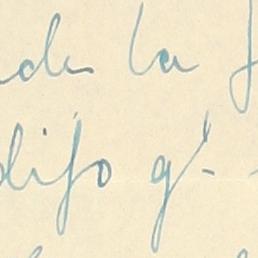 de la
dijo q'-